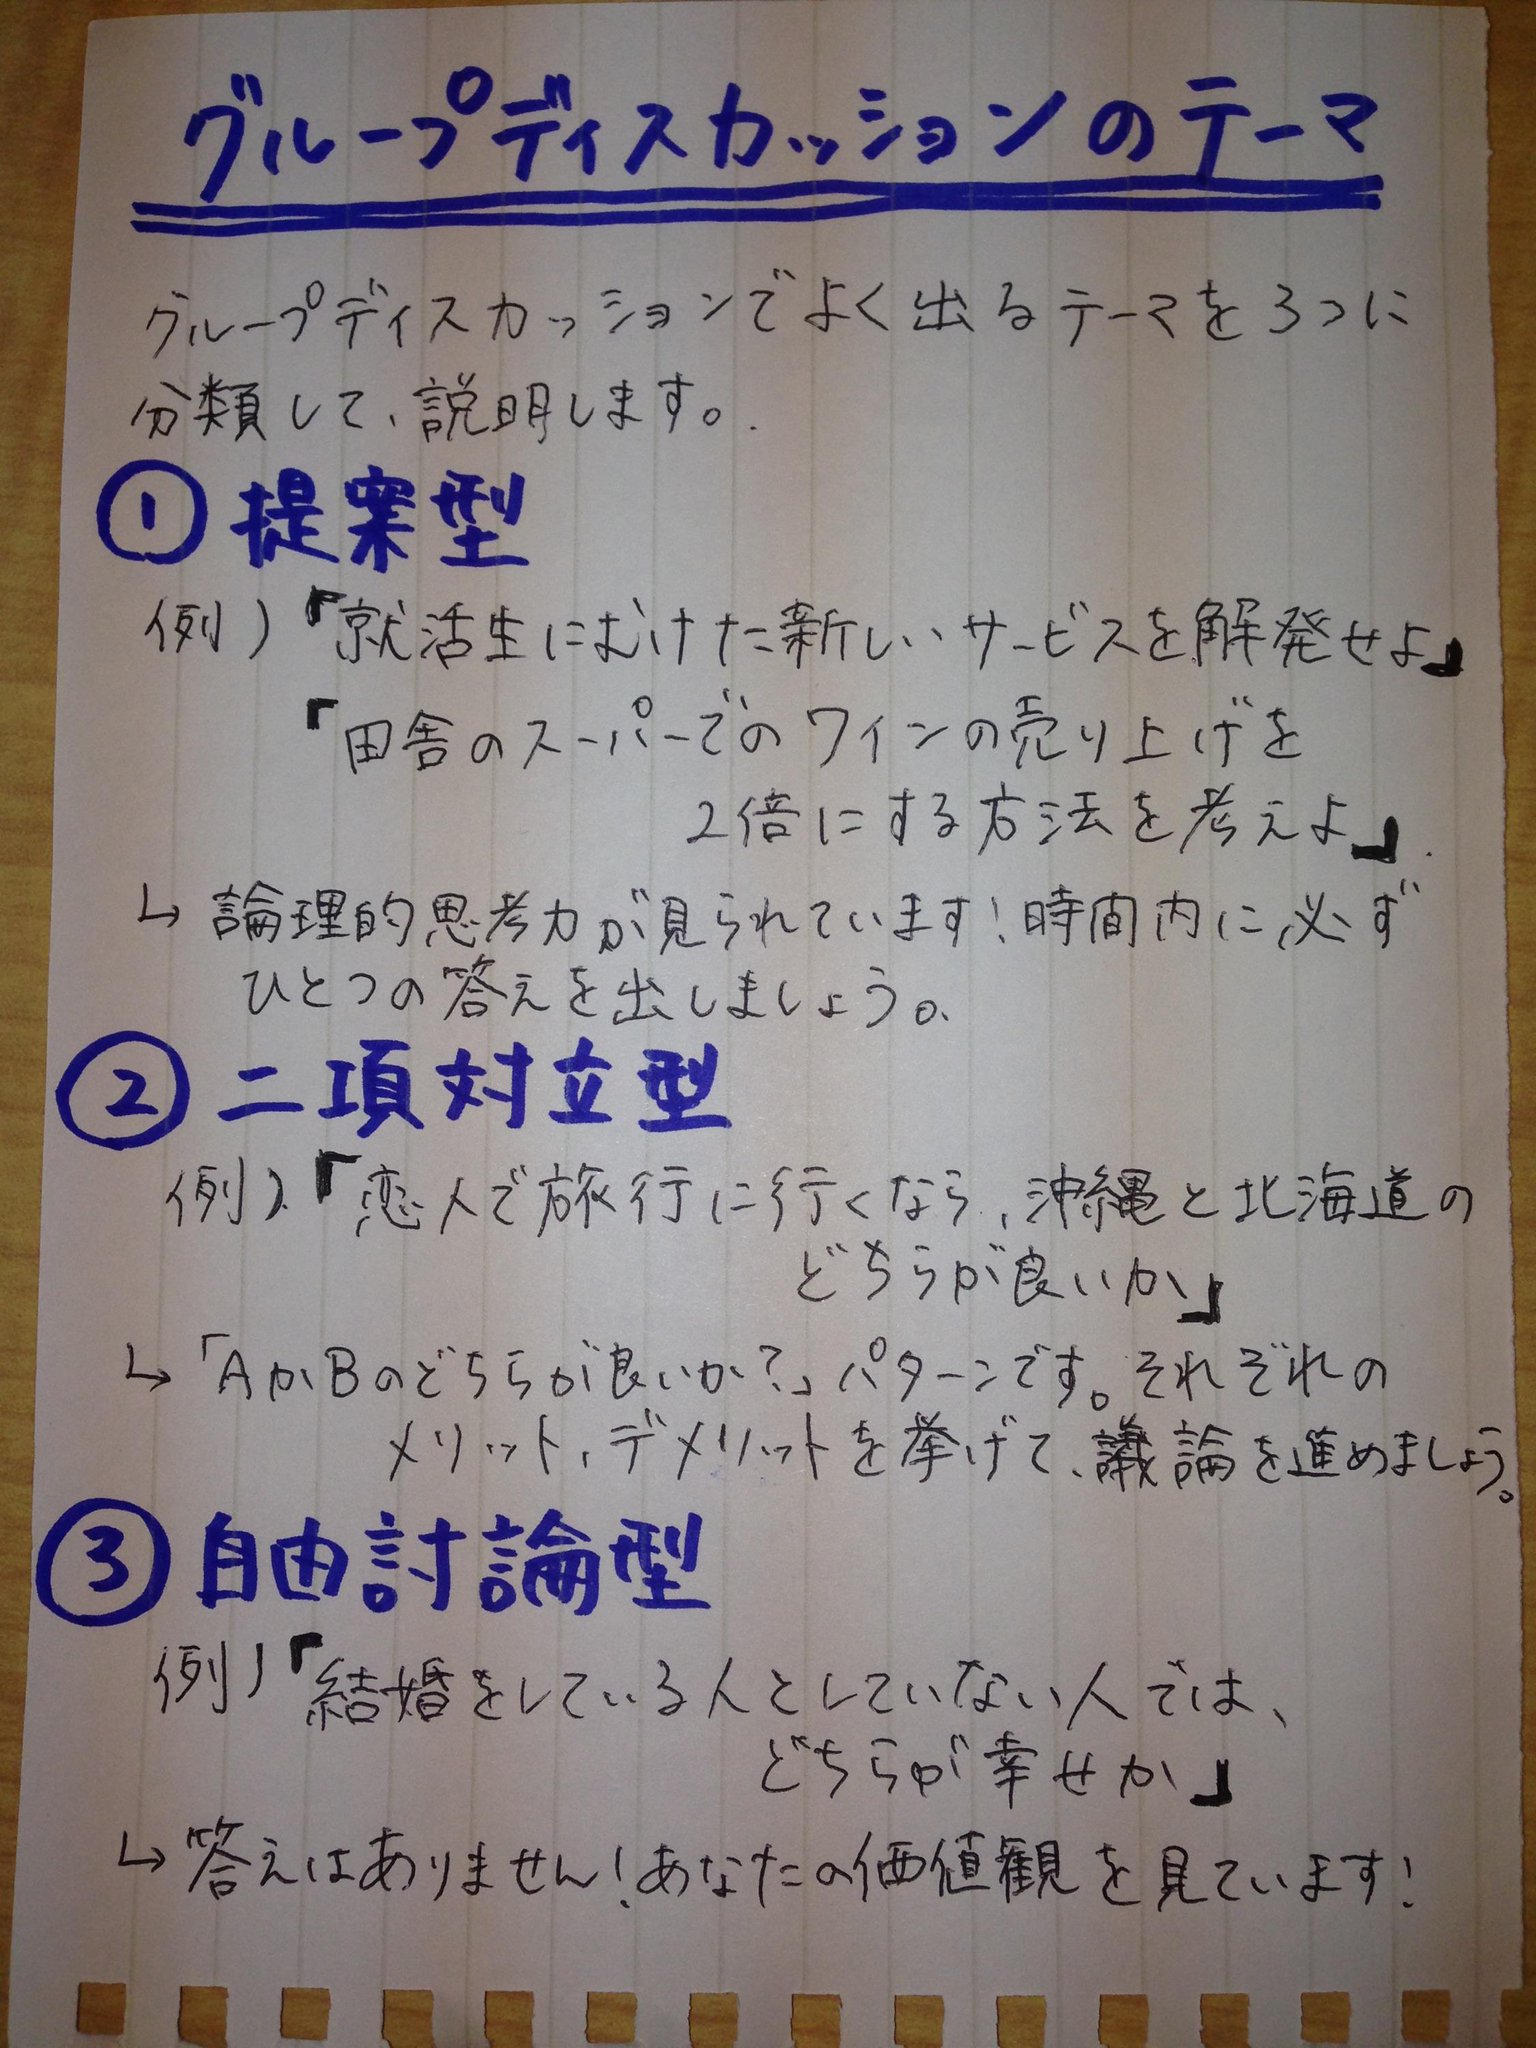 グループディスカッションのテーマ
グループディスカッションでよく出るテーマを3つに
分類して、説明します。
① 提案型
例)『就活生にむけた新しいサービスを解発せよ』
『田舎のスーパーでのワインの売り上げを
2倍にする方法を考えよ』
↳ 論理的思考力が見られています!時間内に必ず
ひとつの答えを出しましょう。
② 二項対立型
例)『恋人で旅行に行くなら、沖縄と北海道の
どちらが良いか』
↳「AかBのどちらが良いか?」パターンです。それぞれの
メリット、デメリットを挙げて、議論を進めましょう。
③ 自由討論型
例)『結婚をしている人としていない人では、
どちらが幸せか』
↳ 答えはありません!あなたの価値観を見ています!